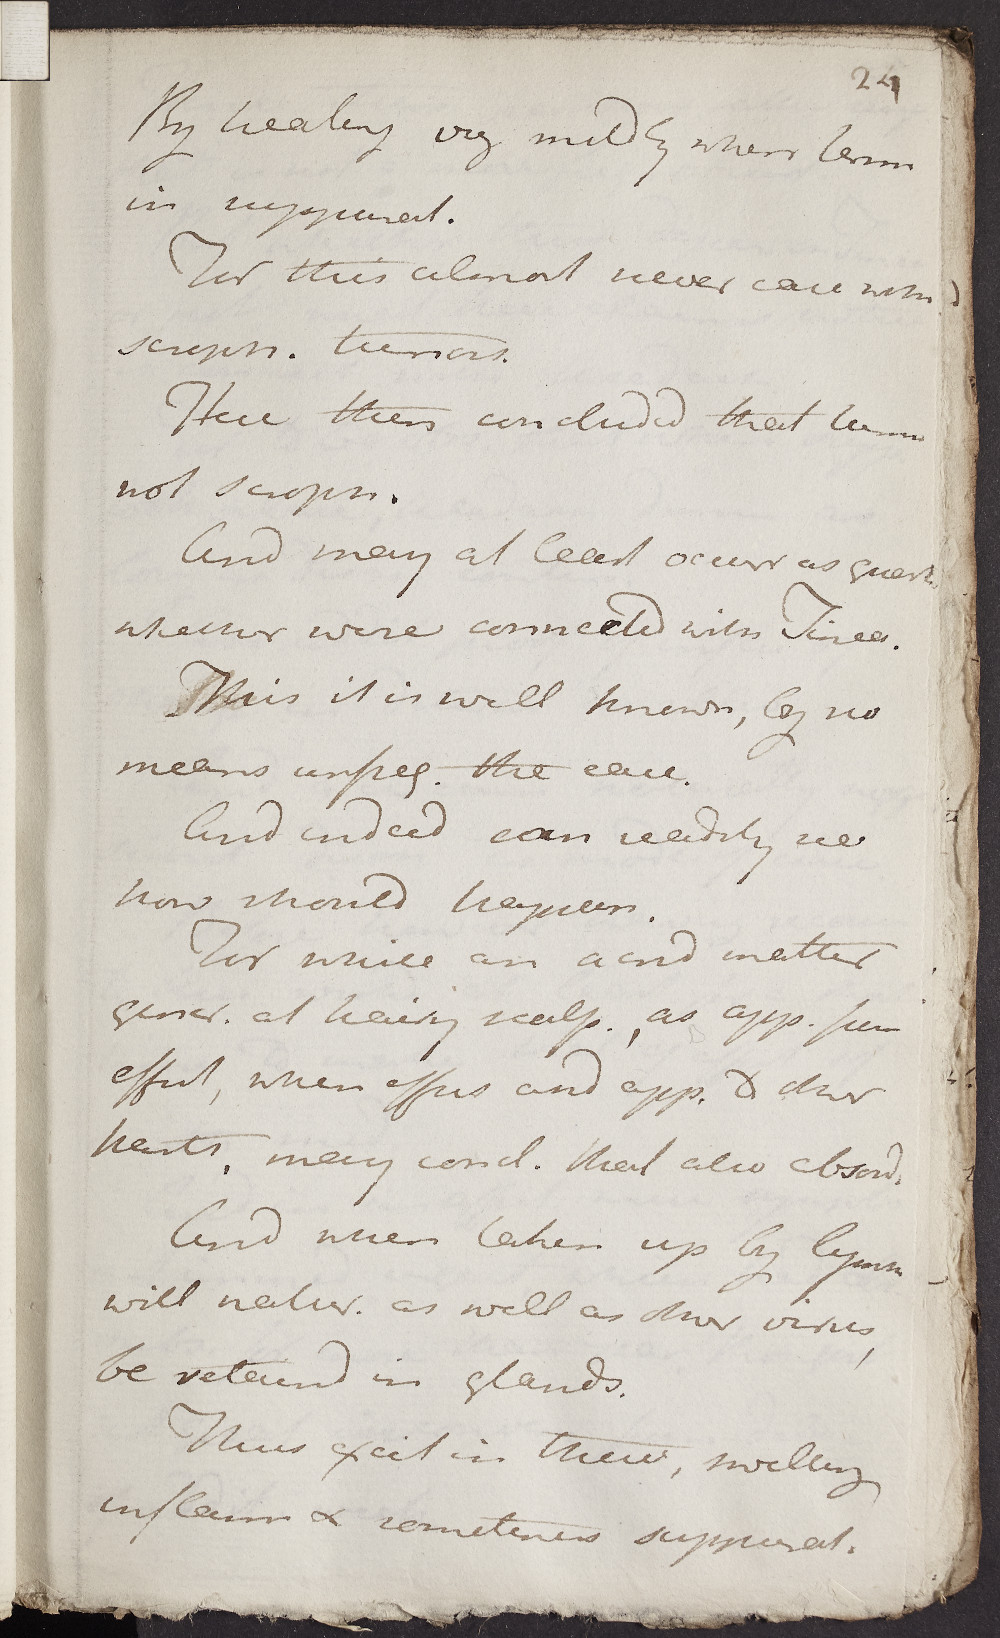 24
By healing very mildly when term
in suppurat.
For this almost never case with
scroph. tumors.
Here then concluded that tum
not scroph.
And may at least occur as quest.
whether were connected with Tinea.
This it is well known, by no
means unfreq. the case.
And indeed can readily see
how should happen.
For while an acrid matter
gener. at hairy scalp., as app. from
effect, when effus and app. to other
parts, may concl. that also absorb.
And when taken up by lymph
will natur. as well as other virus,
be retaind in glands.
Thus excit in these, swelling
inflamm & sometimes suppurat.